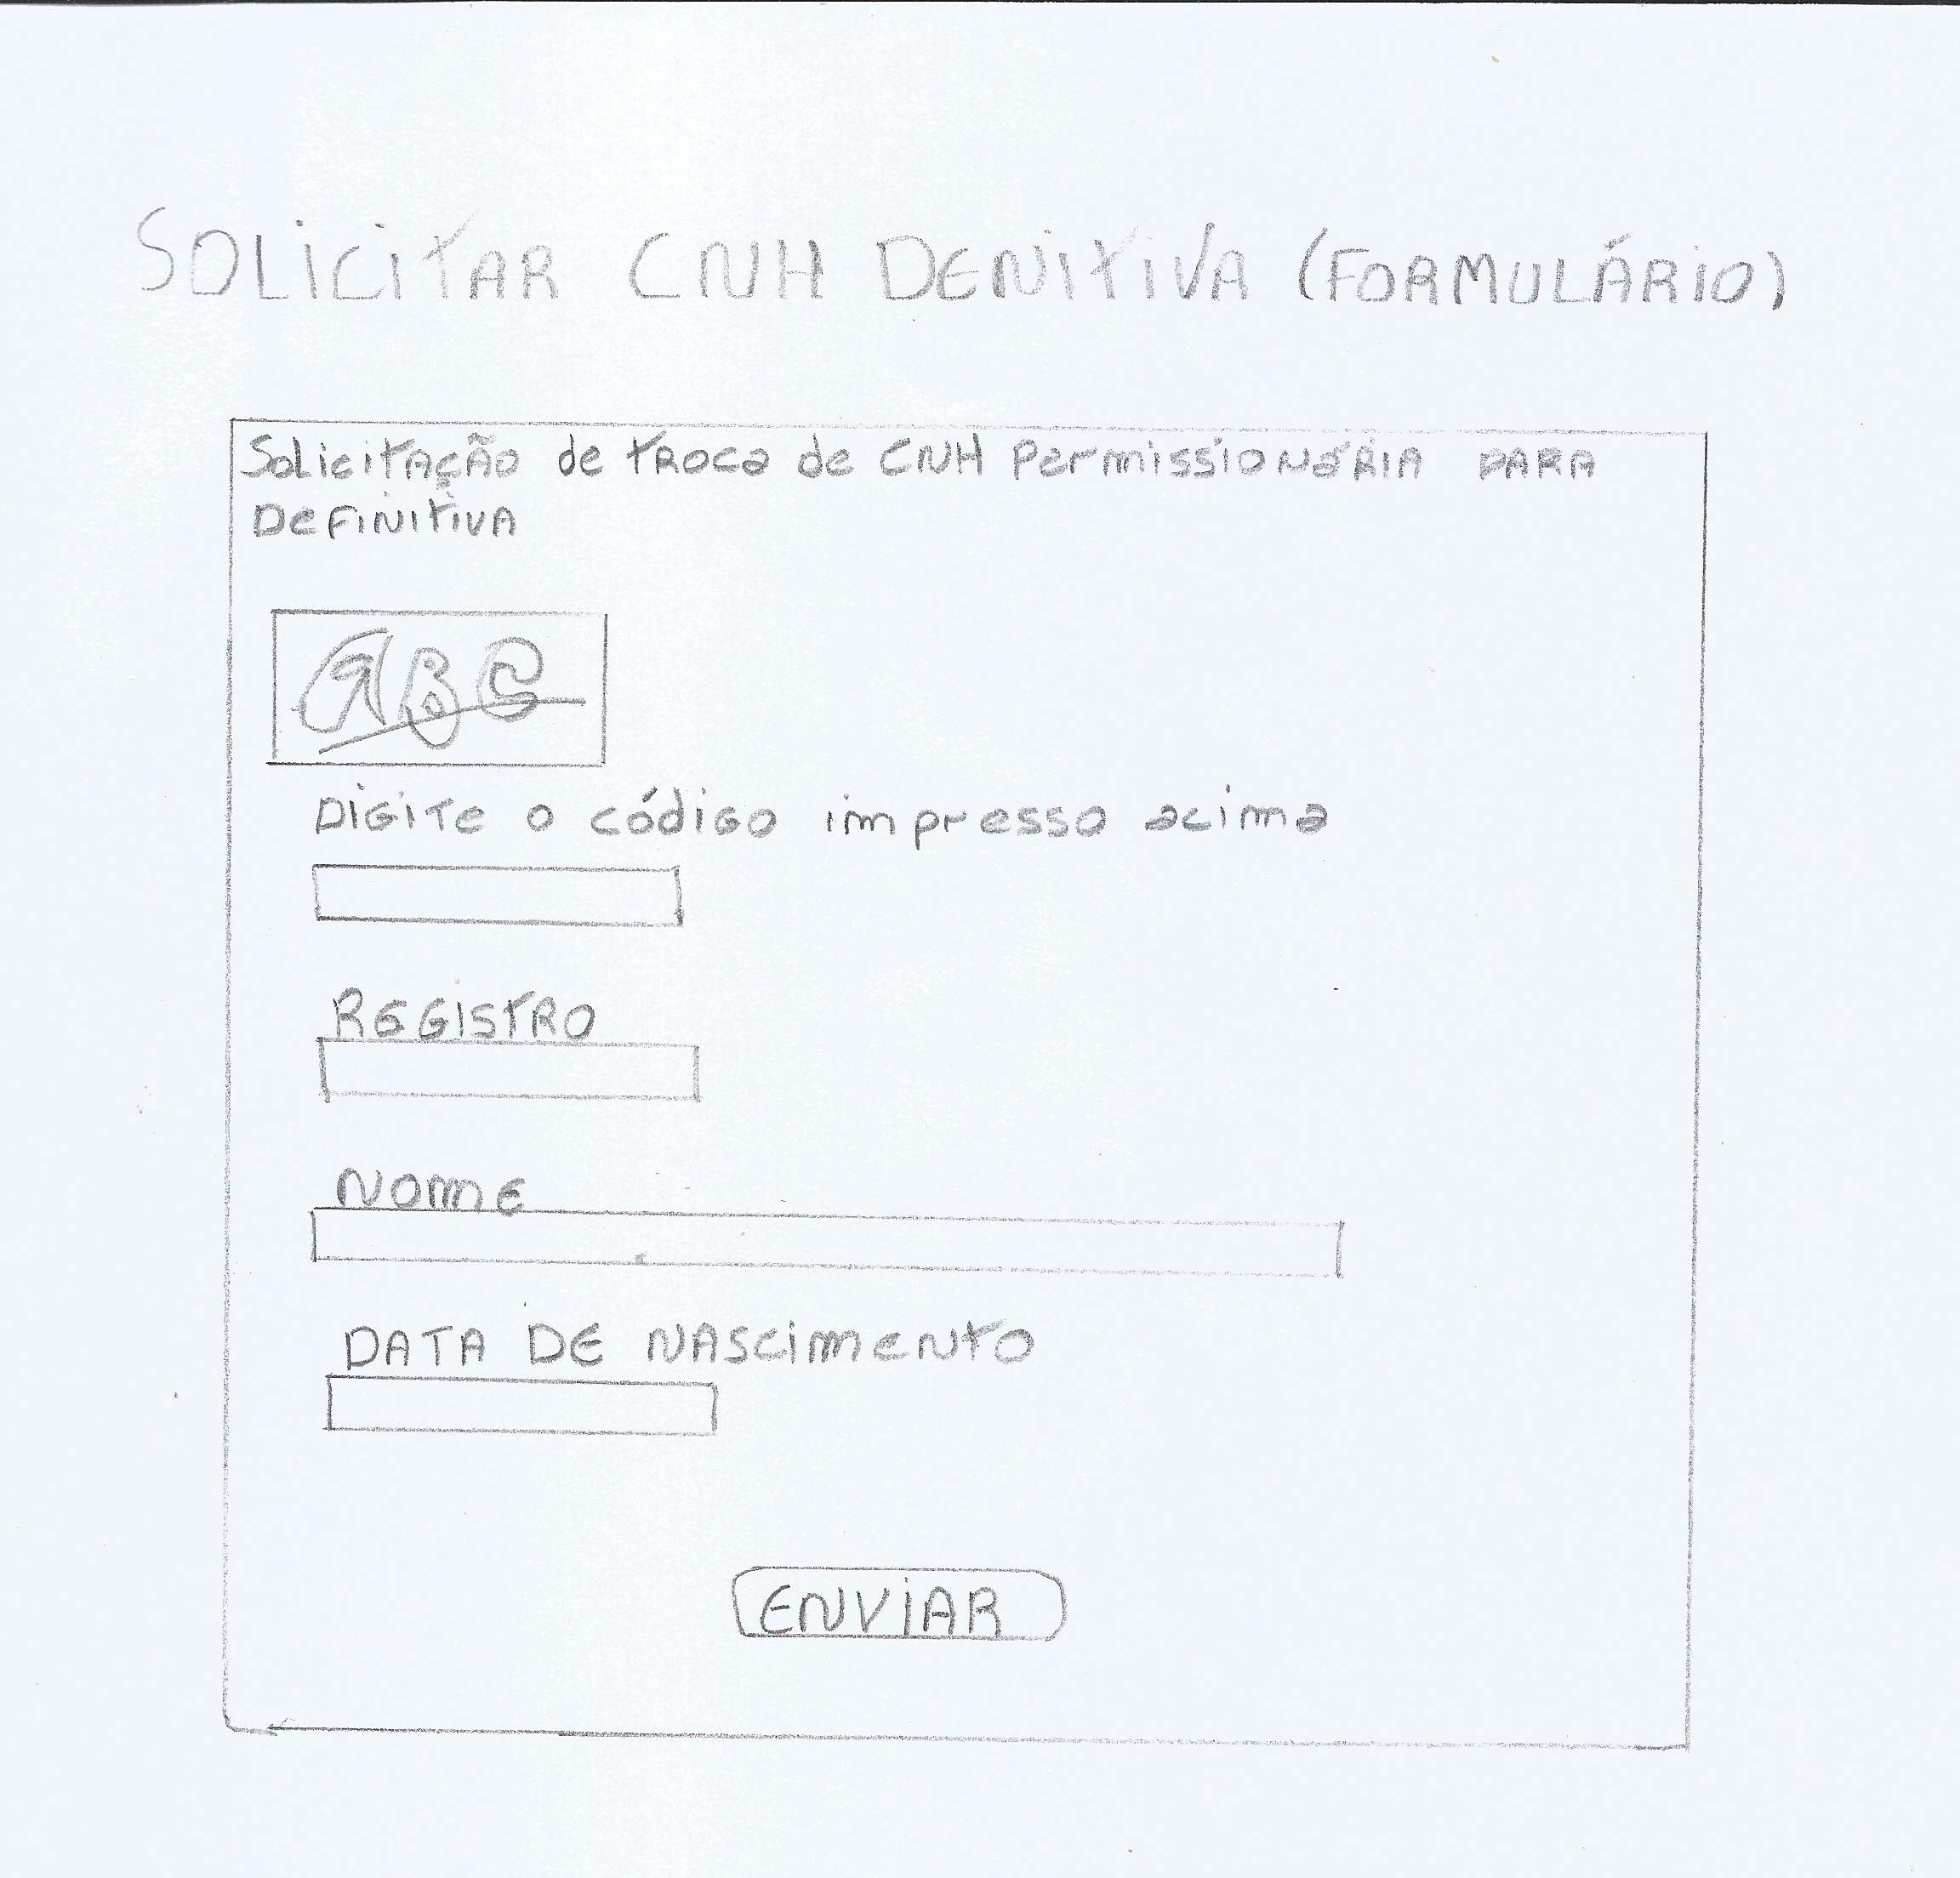 SOLICITAR CNH DENITIVA (FORMULÁRIO)
Solicitação de troca de CNH Permissionária para
Definitiva
ABC
Digite o código impresso acima
REGISTRO
NOME
DATA DE NASCIMENTO
ENVIAR